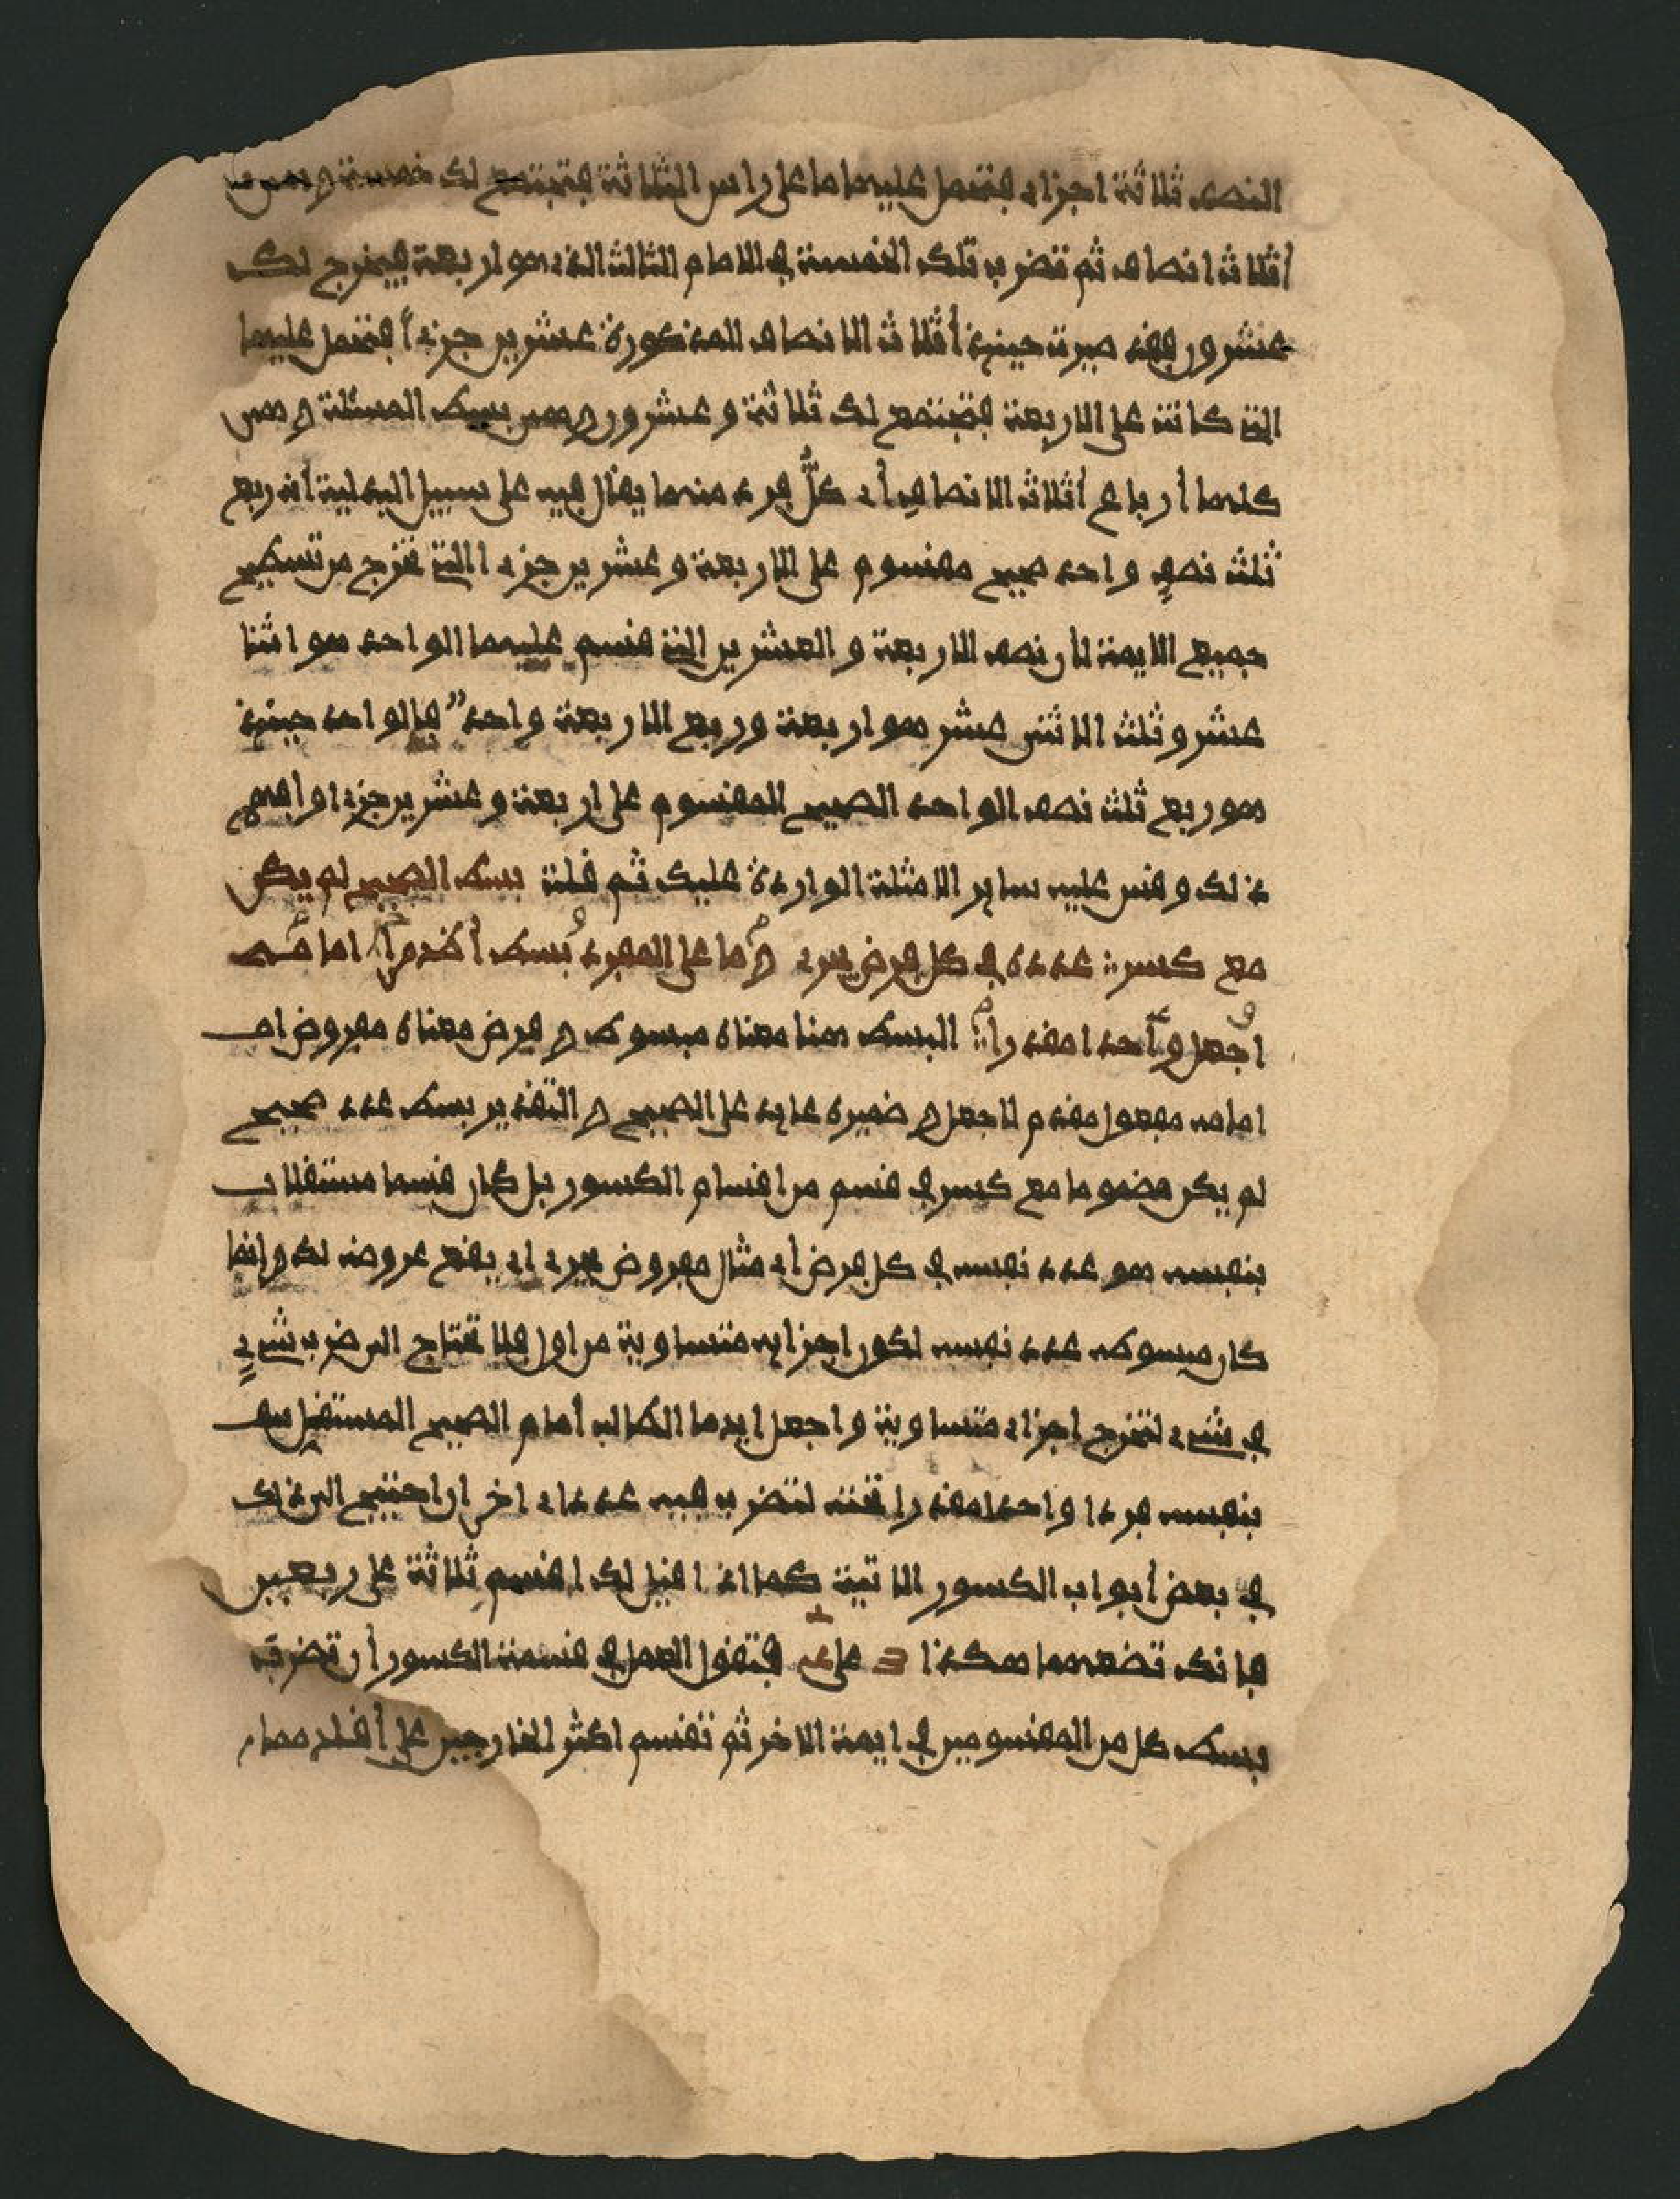 النصف ثلاثة اجزاء فتحمل عليها ما على راس الثلاثة فتجتمع لك خمسة وهي
أثلاث انصاف ثم تضرب تلك الخمسة في الامام الثالث الذي هو اربعة فيخرج لك
عشرون فقد صيرت حينئذ أثلاث الانصاف المذكورة عشرين جزءاً فتحمل عليها
التي كانت على الاربعة فتجتمع لك ثلاثة وعشرون وهي بسط المسئلة وهي
كلها أرباع أثلاث الانصاف أي كلُّ فرد منها يقال فيه على سبيل البدلية أنه ربع
ثلث نصفٍ واحد صحيح مقسوم على الاربعة وعشرين جزءا التي تخرج من تسطيح
جميع الايمة لأن نصف الاربعة والعشرين التي قسم عليها الواحد هو اثنا
عشر وثلث الاثنى عشر هو اربعة وربع الاربعة واحدٌ فالواحد حينئذ
هو ربع ثلث نصف الواحد الصحيح المقسوم على اربعة وعشرين جزءا وافهم
ذلك وقس عليه ساير الامثلة الواردة عليك ثم قلت بسط الصحيح لم يكن
مع كسر : عدده في كل فرض يجري وما على المفرد بسط أخدم اما مَـه
اجعل واحدا مقدرا : البسط هنا معناه مبسوط وفرض معناه مفروض امـ
امامه مفعول مقدم لاجعل وضميره عايد على الصحيح والتقدير بسط عدد صحيح
لم يكن مضموما مع كسر في قسم من اقسام الكسور بل كان قسما مستقلا بـ
بنفسه هو عدد نفسه في كل فرض أي مثال مفروض يجري اي يقع عروضه لك وإنما
كان مبسوطه عدد نفسه لكون اجزايه متساوية من اول فلا تحتاج الى ضرب شيءٍ
في شيء لتخرج اجزاء متساوية واجعل ايها الطالب أمام الصحيح المستقل بنفـ
بنفسه فردا واحدا مقدرا تحته لتضرب فيه عددا اخر ان احتيج الى ذلك
في بعض أبواب الكسور الاتية كما اذا قيل لك اقسم ثلاثة على ربعين
فانك تضعهما هكذا على فتقول العمل في قسمة الكسور أن تضرب
بسط كل من المقسومين في ايمة الاخر ثم تقسم اكثر الخارجين على أقلهما